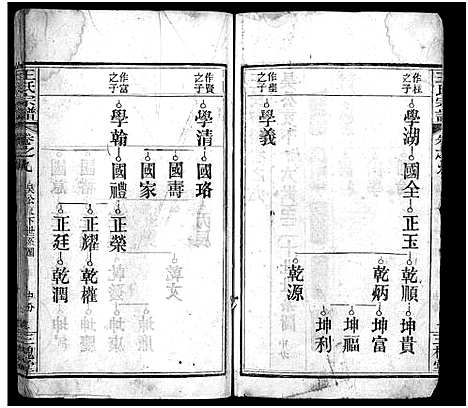 王氏宗譜
作柱之子
學湖
國全
正玉
乾順
乾炳
乾源
坤貴
坤富
坤福
坤利
學義
三槐堂
王氏宗譜
卷之九
作賢之子
學清
國璐
作富之子
學翰
國壽
國家
國禮
正榮
正耀
正廷
乾權
乾潤
三槐堂